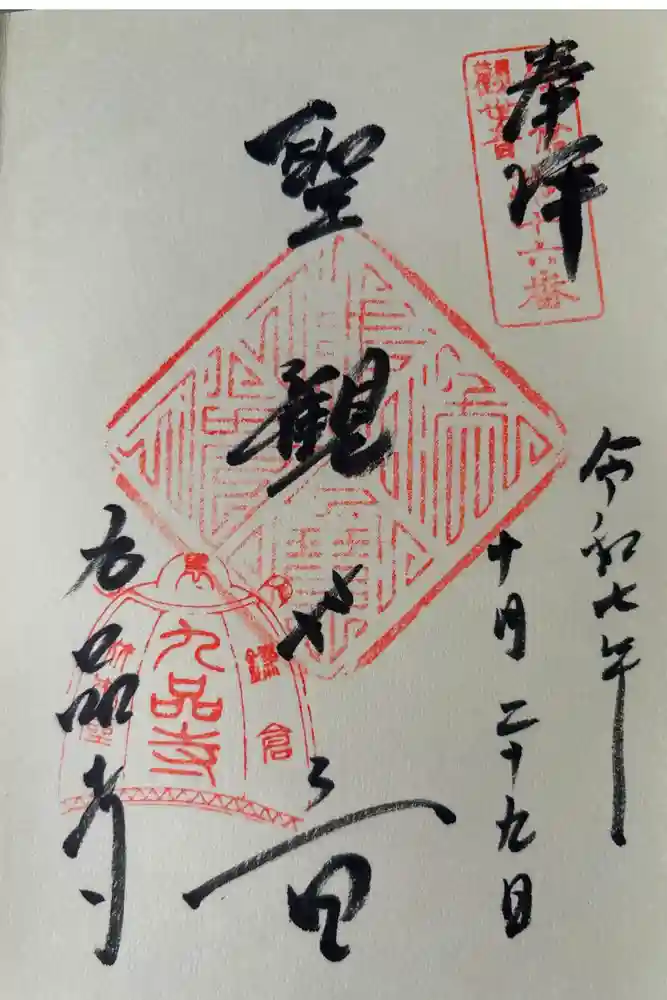 奉拝
十六番
觀世音
令和七年
十月二十九日
聖觀世音
九品寺
九品寺
鎌倉